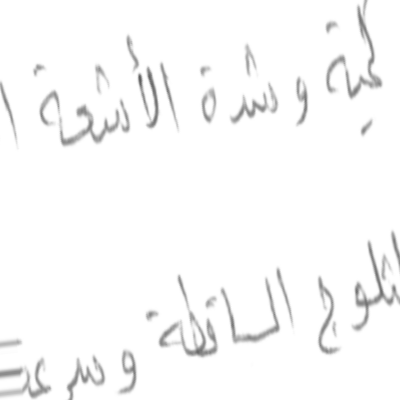 كمية و شدة الأشعة ا
لثلوج الساقطة و سرعـ